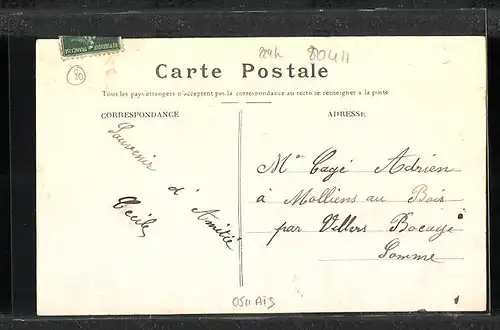 REPUBLIQUE FRANÇAISE
80
224h
80411
Carte Postale
Tous les pays étrangers n'acceptent pas la correspondance au recto se renseigner à la poste
CORRESPONDANCE
ADRESSE
Souvenir
d'Amitié
Cécile
Mr Cagé Adrien
à Molliens au Bois
par Villers Bocage
Somme
0511 A1S